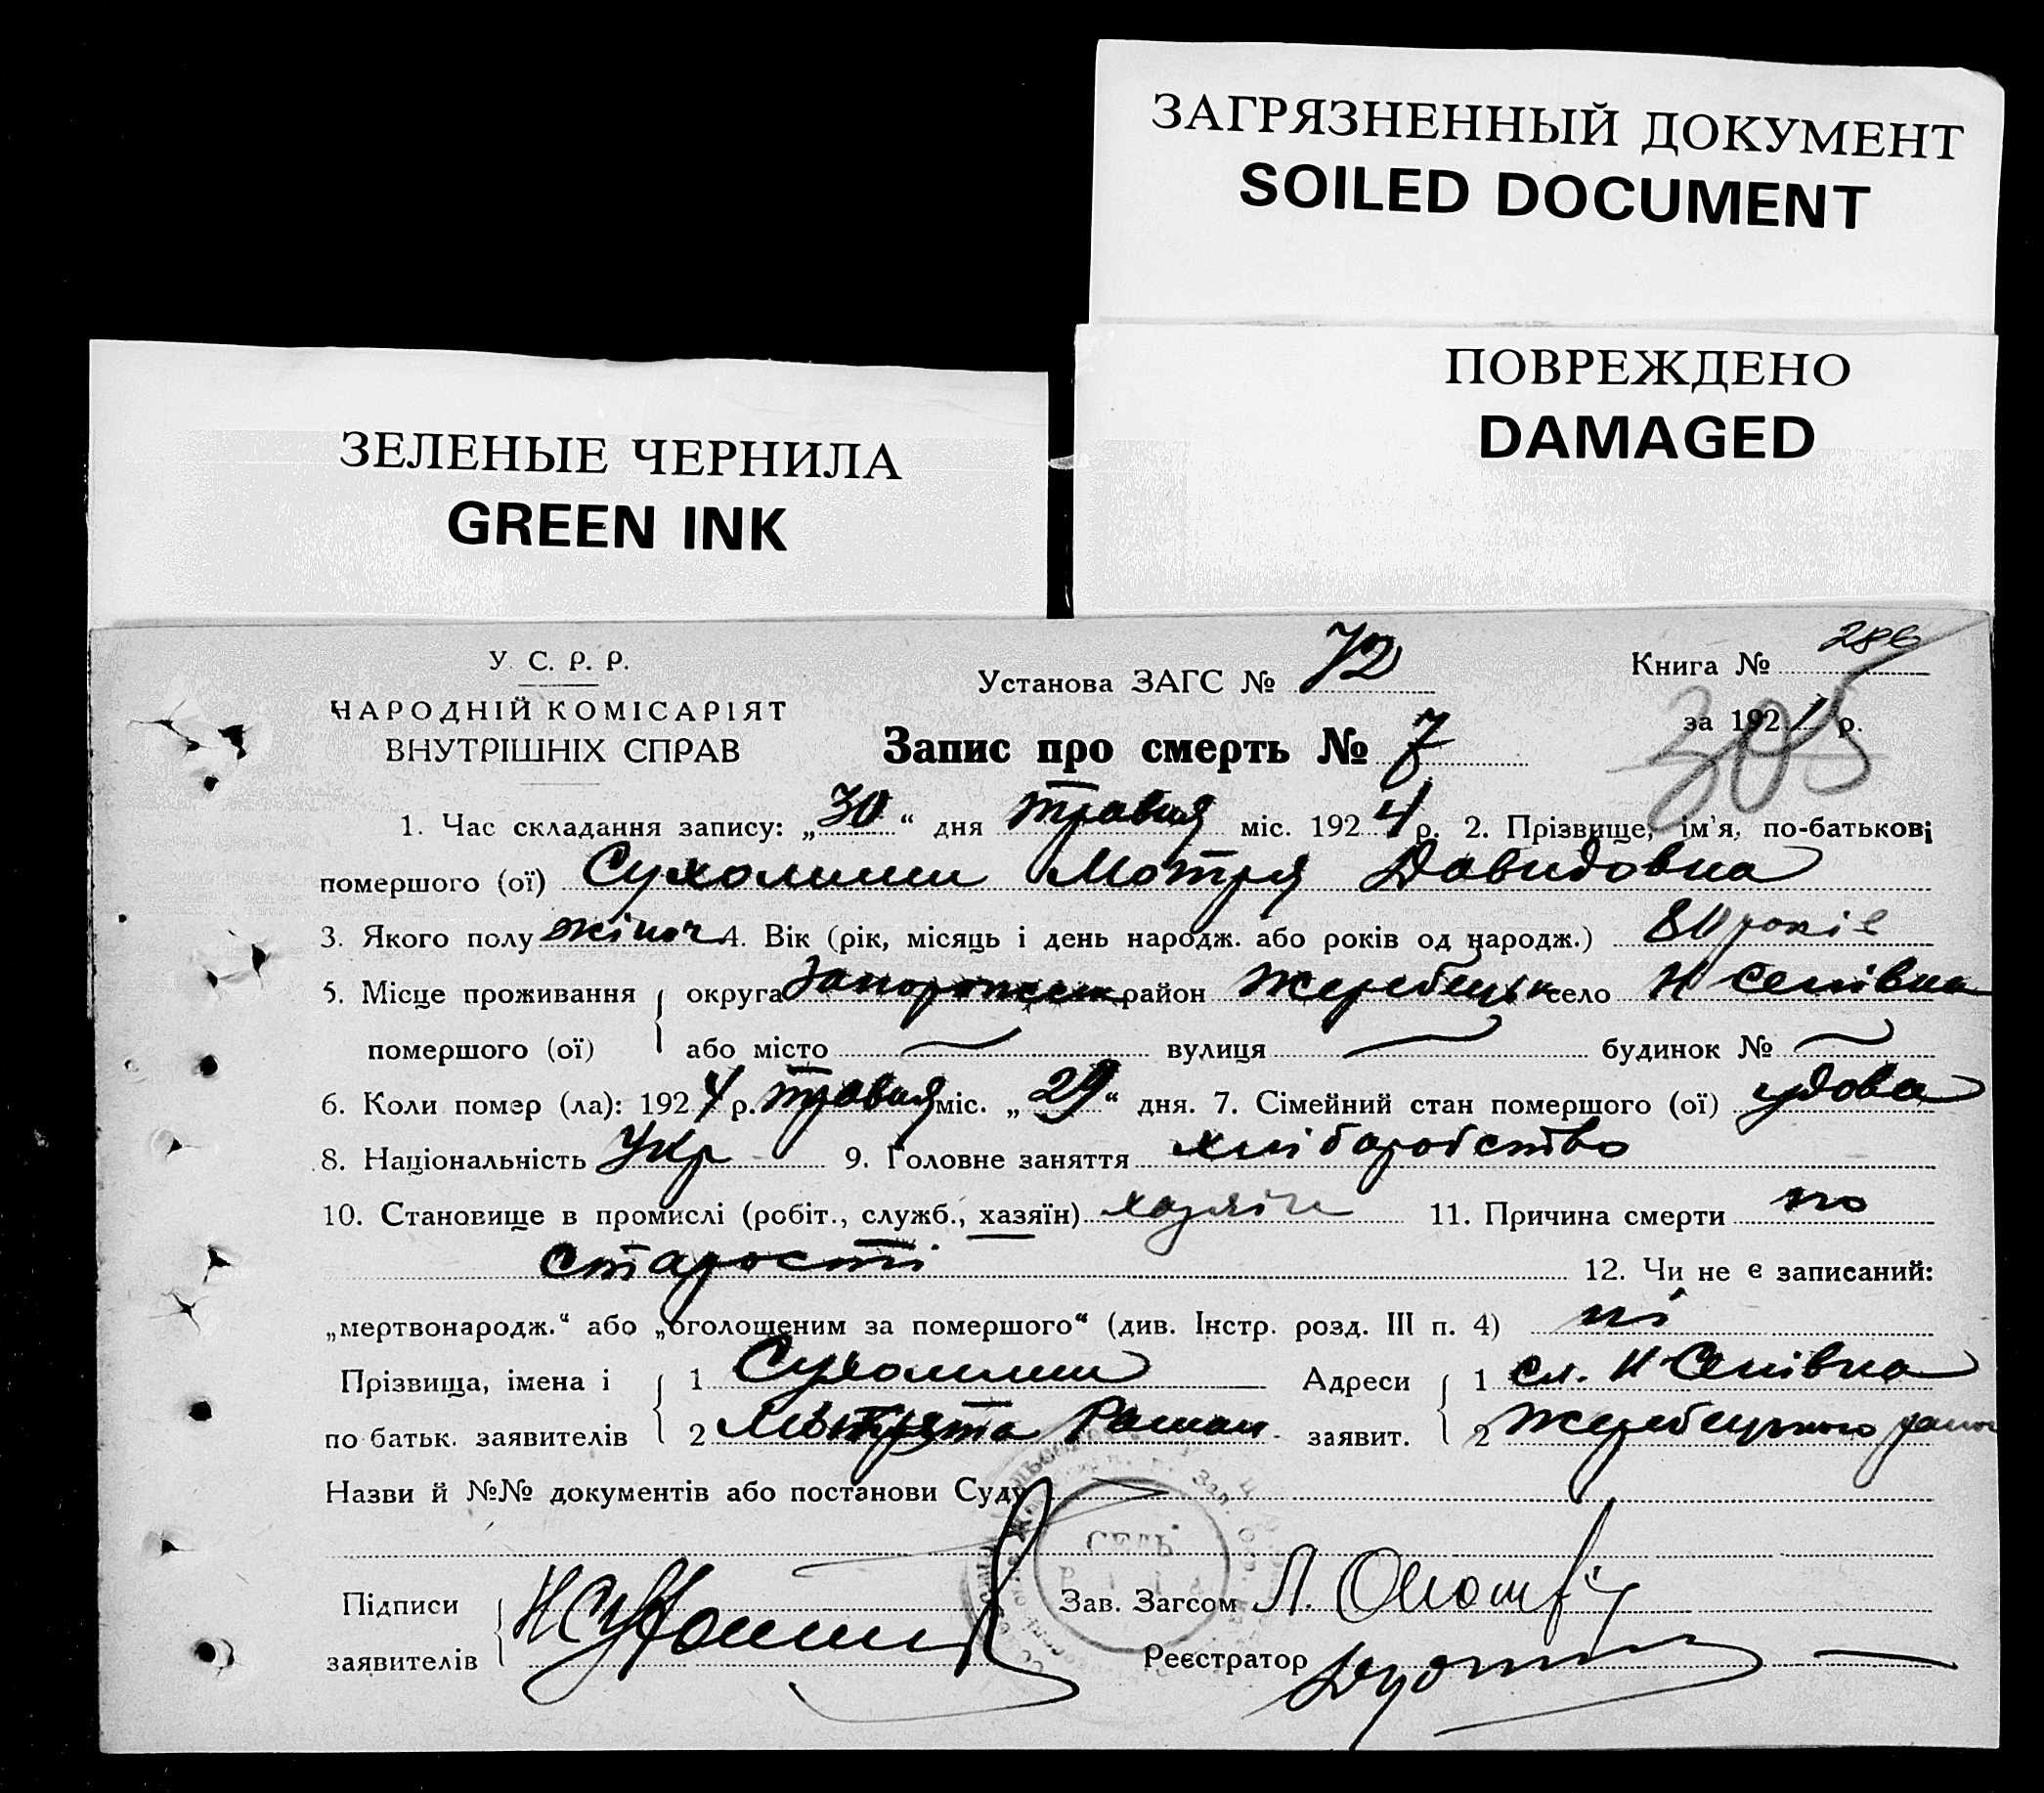 ЗАГРЯЗНЕННЫЙ ДОКУМЕНТ
SOILED DOCUMENT
ПОВРЕЖДЕНО
DAMAGED
ЗЕЛЕНЫЕ ЧЕРНИЛА
GREEN INK
У. С. Р. Р.
НАРОДНІЙ КОМІСАРІЯТ
ВНУТРІШНІХ СПРАВ
Установа ЗАГС № 72
Книга № 286
за 1924 р.
305
Запис про смерть № 7
1. Час складання запису: „30“ дня травня міс. 1924 р. 2. Прізвище, ім'я, по-батькові
помершого (ої) Сухолиткий Мотря Давидовна
3. Якого полу жіноч 4. Вік (рік, місяць і день народж. або років од народж.) 80 років
5. Місце проживання округа Запорожськ район Жеребецьк село Н
помершого (ої) або місто — вулиця — будинок № —
6. Коли помер (ла): 1924 р. травня міс. „29“ дня. 7. Сімейний стан помершого (ої) удова
8. Національність Укр 9. Головне заняття хліборобство
10. Становище в промислі (робіт., служб., хазяїн) хазяїн 11. Причина смерти по
старості 12. Чи не є записаний:
„мертвонародж.“ або „оголошеним за помершого“ (див. Інстр. розд. III п. 4) ні
Прізвища, імена і 1 Адреси 1 сл. Н
по батьк. заявителів 2 Роман заявит. 2 Жеребецького район
Назви й №№ документів або постанови Суду
Підписи Зав. Загсом Л.
заявителів Реєстратор